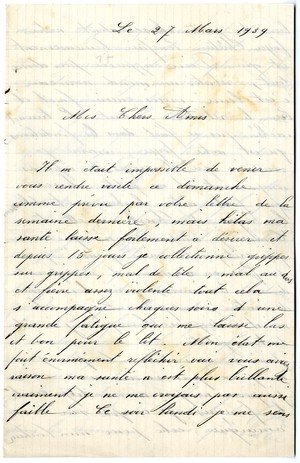 Le 27 Mars 1939
Mes Chers Amis
Il m etait impossible de venir
vous rendre visite ce dimanche
comme prevu par votre lettre de la
semaine derniere, mais hélas ma
santé laisse fortement à desirer et
depuis 15 jours je collectionne grippes
sur grippes, mal de tête, mal au dos
et fievre assez violente tout cela
s accompagne chaques soirs d une
grande fatigue que me laisse las
et bon pour le lit. Mon état me
fait enormement reflechir oui vous avez
raison ma santé n est plus brillante
vraiment je ne me croyais pas aussi
faible. Ce soir lundi je me sens